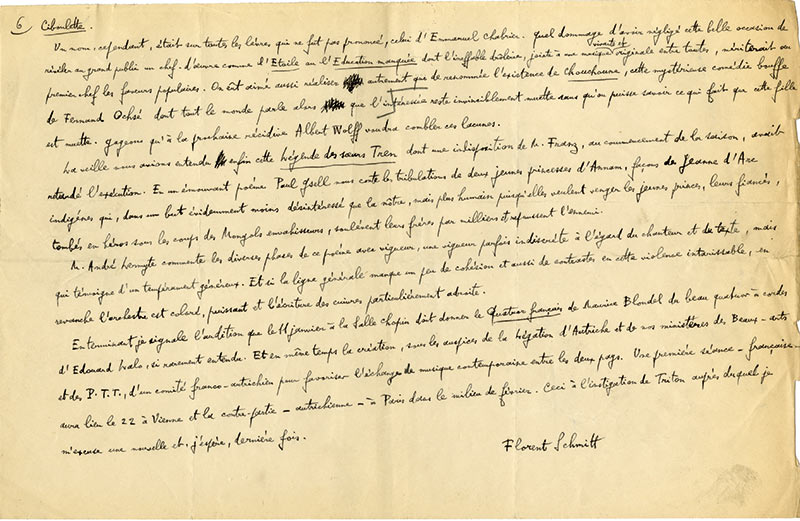 6 Ciboulette.
Un nom, cependant, était sur toutes les lèvres, qui ne fut pas prononcé, celui d'Emmanuel Chabrier. Quel dommage d'avoir négligé cette belle occasion de
révéler au grand public un chef-d'œuvre comme l'Etoile ou l'Education manquée dont l'ineffable drôlerie, jointe à une musique vivante et originale entre toutes, mériterait au
premier chef les faveurs populaires. On eût aimé aussi réaliser autrement que de renommée l'existence de Choucheure, cette mystérieuse comédie bouffe
de Fernand Ochsé dont tout le monde parle alors que l'intéressée reste invinciblement muette sans qu'on puisse savoir ce qui fait que cette fille
est muette. Gageons qu'à la prochaine récidive Albert Wolff voudra combler ces lacunes.
La veille nous avions entendu enfin cette Légende des sœurs Tren dont une indisposition de M. Franz, au commencement de la saison, avait
retardé l'exécution. En un émouvant poème Paul Gsell nous conte les tribulations de deux jeunes princesses d'Annam, façons de Jeanne d'Arc
indigènes qui, dans un but évidemment moins désintéressé que la nôtre, mais plus humain puisqu'elles veulent venger les jeunes princes, leurs fiancés,
tombés en héros sous les coups des Mongols envahisseurs, soulèvent leurs frères par milliers et repoussent l'ennemi.
M. André Lermyte commente les diverses phases de ce poème avec vigueur, une vigueur parfois indiscrète à l'égard du chanteur et du texte, mais
qui témoigne d'un tempérament généreux. Et si la ligne générale manque un peu de cohésion et aussi de contrastes en cette violence intarissable, en
revanche l'orchestre est coloré, puissant et l'écriture des cuivres particulièrement adroite.
En terminant je signale l'audition que le 11 janvier à la Salle Chopin doit donner le Quatuor français de Maurice Blondel du beau quatuor à cordes
d'Edouard Lalo, si rarement entendu. Et en même temps la création, sous les auspices de la légation d'Autriche et de nos ministères des Beaux-arts
et des P.T.T., d'un comité franco-autrichien pour favoriser l'échange de musique contemporaine entre les deux pays. Une première séance - française -
aura lieu le 22 à Vienne et la contre-partie - autrichienne - à Paris dans le milien de février. Ceci à l'instigation de Triton auprès duquel je
m'excuse une nouvelle et, j'espère, dernière fois.
Florent Schmitt